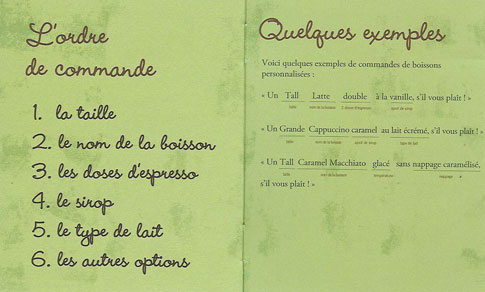 L'ordre
de commande
1. la taille
2. le nom de la boisson
3. les doses d'espresso
4. le sirop
5. le type de lait
6. les autres options
Quelques exemples
Voici quelques exemples de commandes de boissons
personnalisées :
« Un Tall Latte double à la vanille, s'il vous plaît ! »
taille nom de la boisson 2 doses d'espresso ajout de sirop
« Un Grande Cappuccino caramel au lait écrémé, s'il vous plaît ! »
taille nom de la boisson ajout de sirop type de lait
« Un Tall Caramel Macchiato glacé sans nappage caramélisé,
taille nom de la boisson température nappage
s'il vous plaît ! »